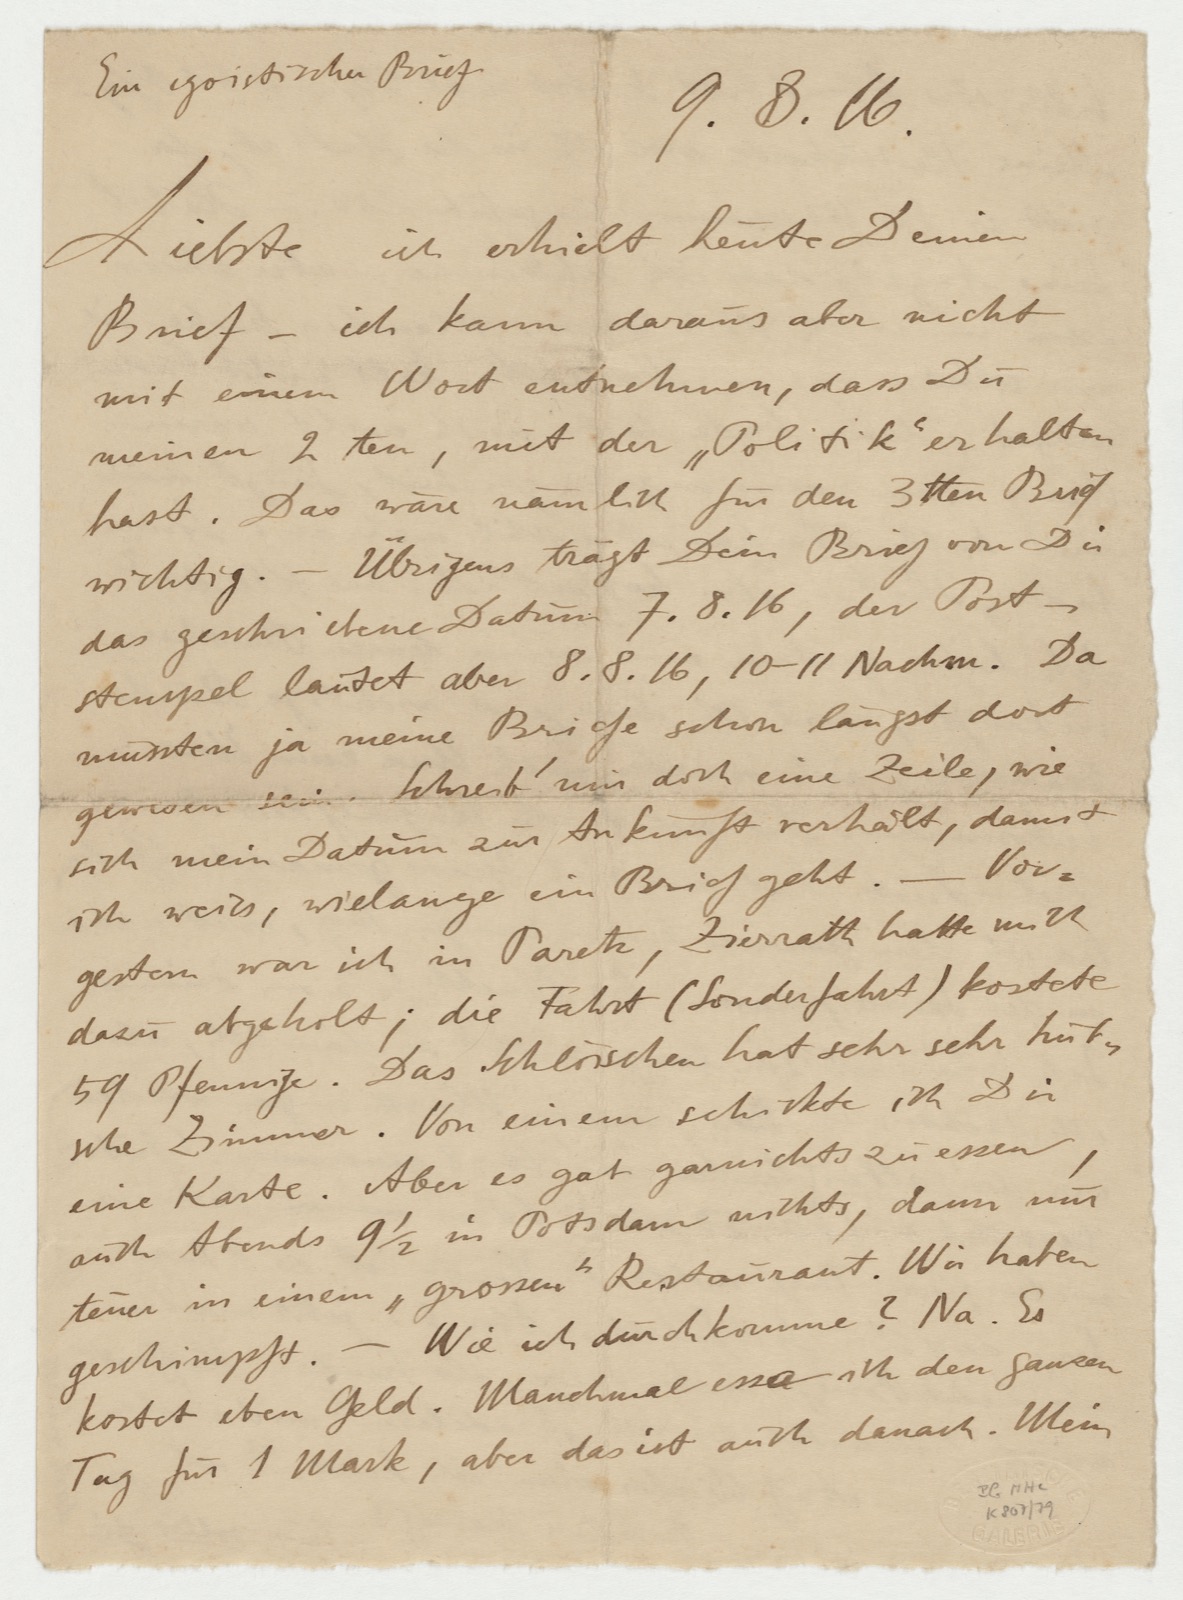 Ein egoistischer Brief
9. 8. 16.
Liebste ich erhielt heute Deinen
Brief – ich kann daraus aber nicht
mit einem Wort entnehmen, dass Du
meinen 2 ten, mit der „Politik“ erhalten
hast. Das wäre nämlich für den 3tten Brief
wichtig. – Übrigens trägt Dein Brief von Dir
das geschriebene Datum 7. 8. 16, der Post-
stempel lautet aber 8. 8. 16, 10–11 Nachm. Da
mussten ja meine Briefe schon längst dort
gewesen sein. Schreib' mir doch eine Zeile, wie
sich mein Datum zur Ankunft verhält, damit
ich weiss, wielange ein Brief geht. — Vor=
gestern war ich in Paretz, Zierrath hatte mich
dazu abgeholt; die Fahrt (Sonderfahrt) kostete
59 Pfennige. Das Schlösschen hat sehr sehr hüb-
sche Zimmer. Von einem schickte ich Dir
eine Karte. Aber es gab garnichts zu essen,
auch Abends 9 1/2 in Potsdam nichts, dann nur
teuer in einem „grossen“ Restaurant. Wir haben
geschimpft. — Wie ich durchkomme? Na. Es
kostet eben Geld. Manchmal esse ich den ganzen
Tag für 1 Mark, aber das ist auch danach. Mein
BG MHc
K 807/79
GALERIE